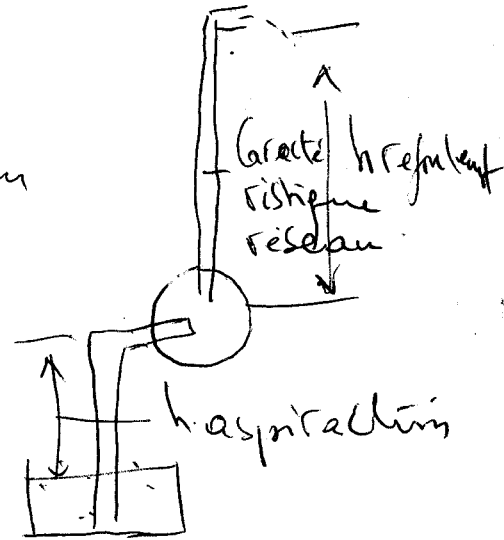 Caracté
ristique
réseau
h refoulemt
h aspiration